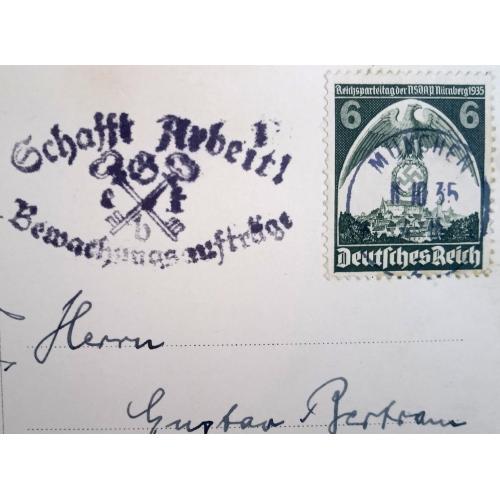 Schafft Arbeit!
e b t
Bewachungsaufträge
Reichsparteitag der NSDAP Nürnberg 1935
6 6
MÜNCHEN
10 35
Deutsches Reich
Herrn
Gustav Bertram